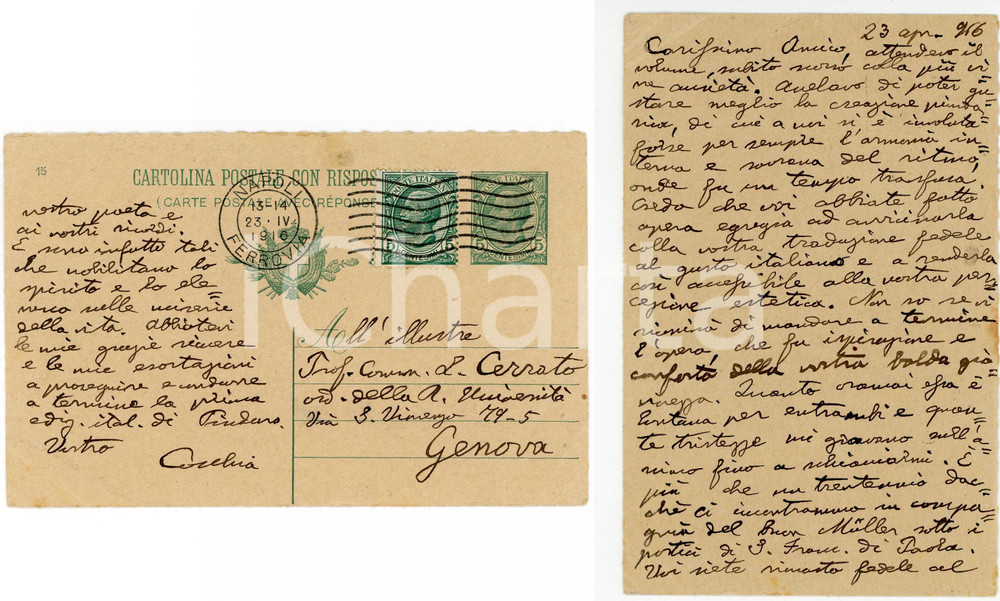 15
CARTOLINA POSTALE CON RISPOS
(CARTE POSTALE AVEC RÉPONSE
NAPOLI
13-14
23·IV
1916
FERROVIA
POSTE ITALIANE
5
CENTESIMI
5
5
CENTESIMI
5
All' illustre
Prof. Comm. L. Cerrato
ord. della R. Università
Via S. Vincenzo 79-5
Genova
23 apr. 916
Carissimo Amico, attendevo il
volume, subito scorso colla più vi
va ansietà. Anelavo di poter gu=
stare meglio la creazione pinda=
rica, di cui a noi si è involata
forse per sempre l'armonia in=
terna e sovrana del ritmo,
onde fu un tempo trasfusa.
Credo che voi abbiate fatto
opera egregia ad avvicinarla
colla vostra traduzione fedele
al gusto italiano e a renderla
così accessibile alla nostra per=
cezione estetica. Non so se vi
riuscirà di mandare a termine
l'opera, che fu ispirazione e
conforto della vostra balda gio
vinezza. Quanto oramai essa è
lontana per entrambi e quan=
te tristezze mi gravano sull'a=
nimo fino a schiacciarmi. È
più che un trentennio dac=
chè ci incontrammo in compa=
gnia del buon Müller sotto i
portici di S. Franc. di Paola.
Voi siete rimasto fedele al
vostro poeta e
ai vostri ricordi.
E sono infatti tali
che nobilitano lo
spirito e lo ele
vano sulle miserie
della vita. Abbiatevi
le mie grazie sincere
e le mie esortazioni
a proseguire e condurre
a termine la prima
ediz. ital. di Pindaro.
Vostro
Cocchia
iCharta